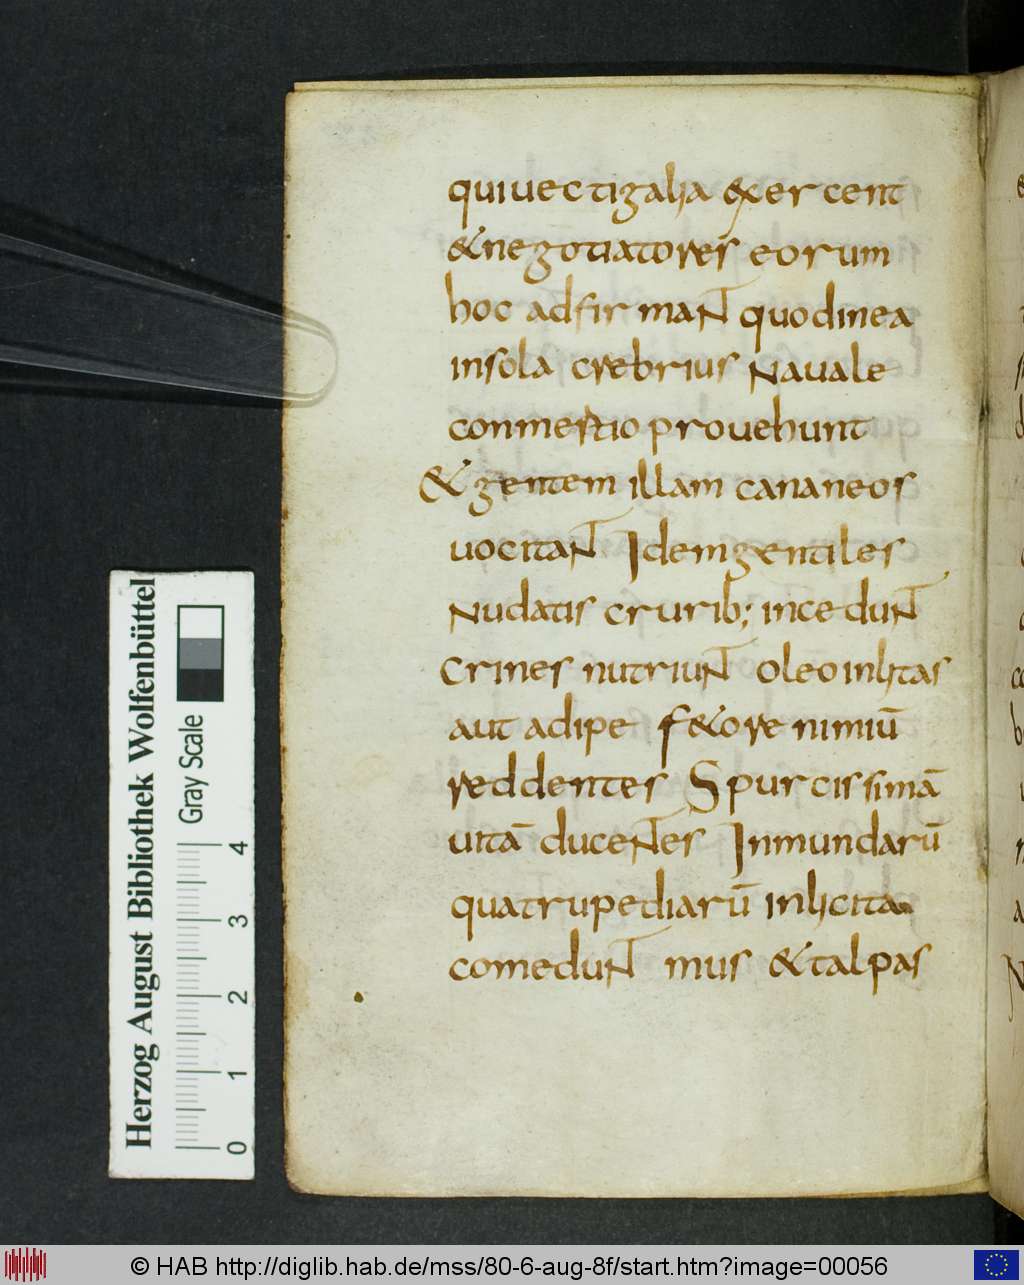 quiuectigalia &xercent
&negotiatores eorum
hoc adfirmaNT quodinea
insola crebrius Nauale
conmertio prouehunt
& gentem illam cananeos
uocitaNT Idemgentiles
Nudatis crurib; inceduNT
Crines nutriuNT oleo inlitas
aut adipe f&ore nimiū
reddentes Spurcissimā
uitā duceNTes Inmundarū
quatrupediarū inlicita
comeduNT mus &talpas
Herzog August Bibliothek Wolfenbüttel
Gray Scale
0 1 2 3 4
© HAB http://diglib.hab.de/mss/80-6-aug-8f/start.htm?image=00056